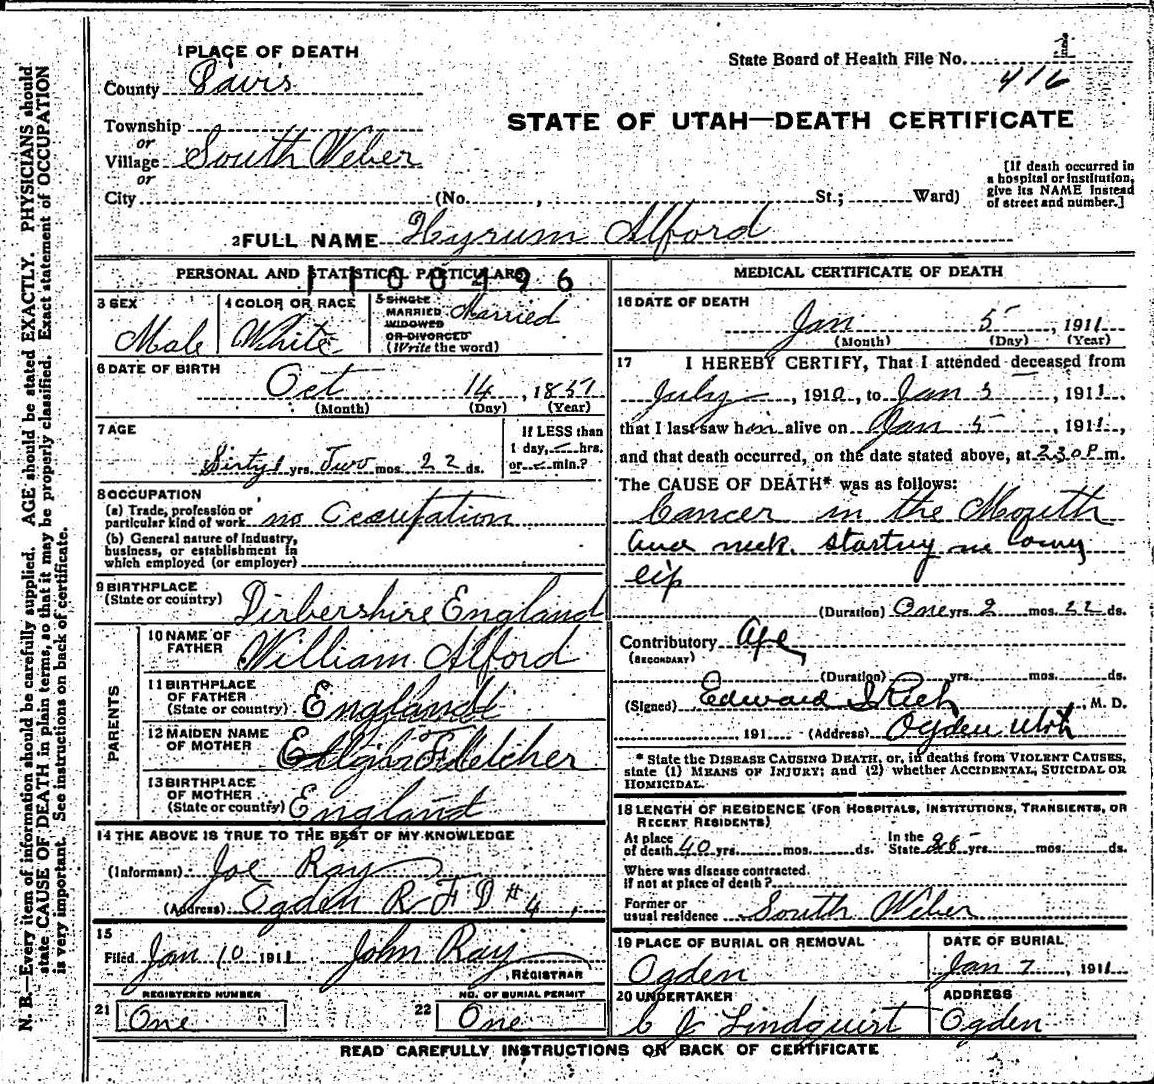 N. B.—Every item of information should be carefully supplied. AGE should be stated EXACTLY. PHYSICIANS should
state CAUSE OF DEATH in plain terms, so that it may be properly classified. Exact statement of OCCUPATION
is very important. See instructions on back of certificate.
1 PLACE OF DEATH
County Davis
Township
or
Village South Weber
or
City (No. , St.; Ward)
State Board of Health File No.
416
STATE OF UTAH—DEATH CERTIFICATE
[If death occurred in
a hospital or institution,
give its NAME instead
of street and number.]
2 FULL NAME Hyrum Alford
PERSONAL AND STATISTICAL PARTICULARS
1100496
3 SEX
Male
4 COLOR OR RACE
White
5 SINGLE
MARRIED
WIDOWED
OR DIVORCED
(Write the word)
Married
6 DATE OF BIRTH
Oct 14, 18
(Month) (Day) (Year)
7 AGE
yrs. Two mos. 22 ds.
If LESS than
1 day, hrs.
or min.?
8 OCCUPATION
(a) Trade, profession or
particular kind of work no Occupation
(b) General nature of industry,
business, or establishment in
which employed (or employer)
9 BIRTHPLACE
(State or country) Dirbershire England
PARENTS
10 NAME OF
FATHER William Alford
11 BIRTHPLACE
OF FATHER
(State or country) England
12 MAIDEN NAME
OF MOTHER Fletcher
13 BIRTHPLACE
OF MOTHER
(State or country) England
14 THE ABOVE IS TRUE TO THE BEST OF MY KNOWLEDGE
(Informant) Joe Ray
(Address) Ogden R F D # 4
15
Filed Jan 10 1911 John Ray
REGISTRAR
REGISTERED NUMBER
21 One
NO. OF BURIAL PERMIT
22 One
MEDICAL CERTIFICATE OF DEATH
16 DATE OF DEATH
Jan 5, 1911
(Month) (Day) (Year)
17 I HEREBY CERTIFY, That I attended deceased from
July, 1910, to Jan 5, 1911,
that I last saw him alive on Jan 5, 1911,
and that death occurred, on the date stated above, at 2 30 P m.
The CAUSE OF DEATH* was as follows:
Cancer in the Mouth
and neck. starting in lower
lip
(Duration) One yrs. 2 mos. 22 ds.
Contributory Age
(SECONDARY)
(Duration) yrs. mos. ds.
(Signed) Edward I Rich, M. D.
191 (Address) Ogden Utah
* State the DISEASE CAUSING DEATH, or, in deaths from VIOLENT CAUSES,
state (1) MEANS OF INJURY; and (2) whether ACCIDENTAL, SUICIDAL OR
HOMICIDAL.
18 LENGTH OF RESIDENCE (FOR HOSPITALS, INSTITUTIONS, TRANSIENTS, OR
RECENT RESIDENTS)
At place
of death 40 yrs. mos. ds.
In the
State yrs. mos. ds.
Where was disease contracted.
if not at place of death?
Former or
usual residence South Weber
19 PLACE OF BURIAL OR REMOVAL
Ogden
DATE OF BURIAL
Jan 7, 1911
20 UNDERTAKER
C J Lindquist
ADDRESS
Ogden
READ CAREFULLY INSTRUCTIONS ON BACK OF CERTIFICATE